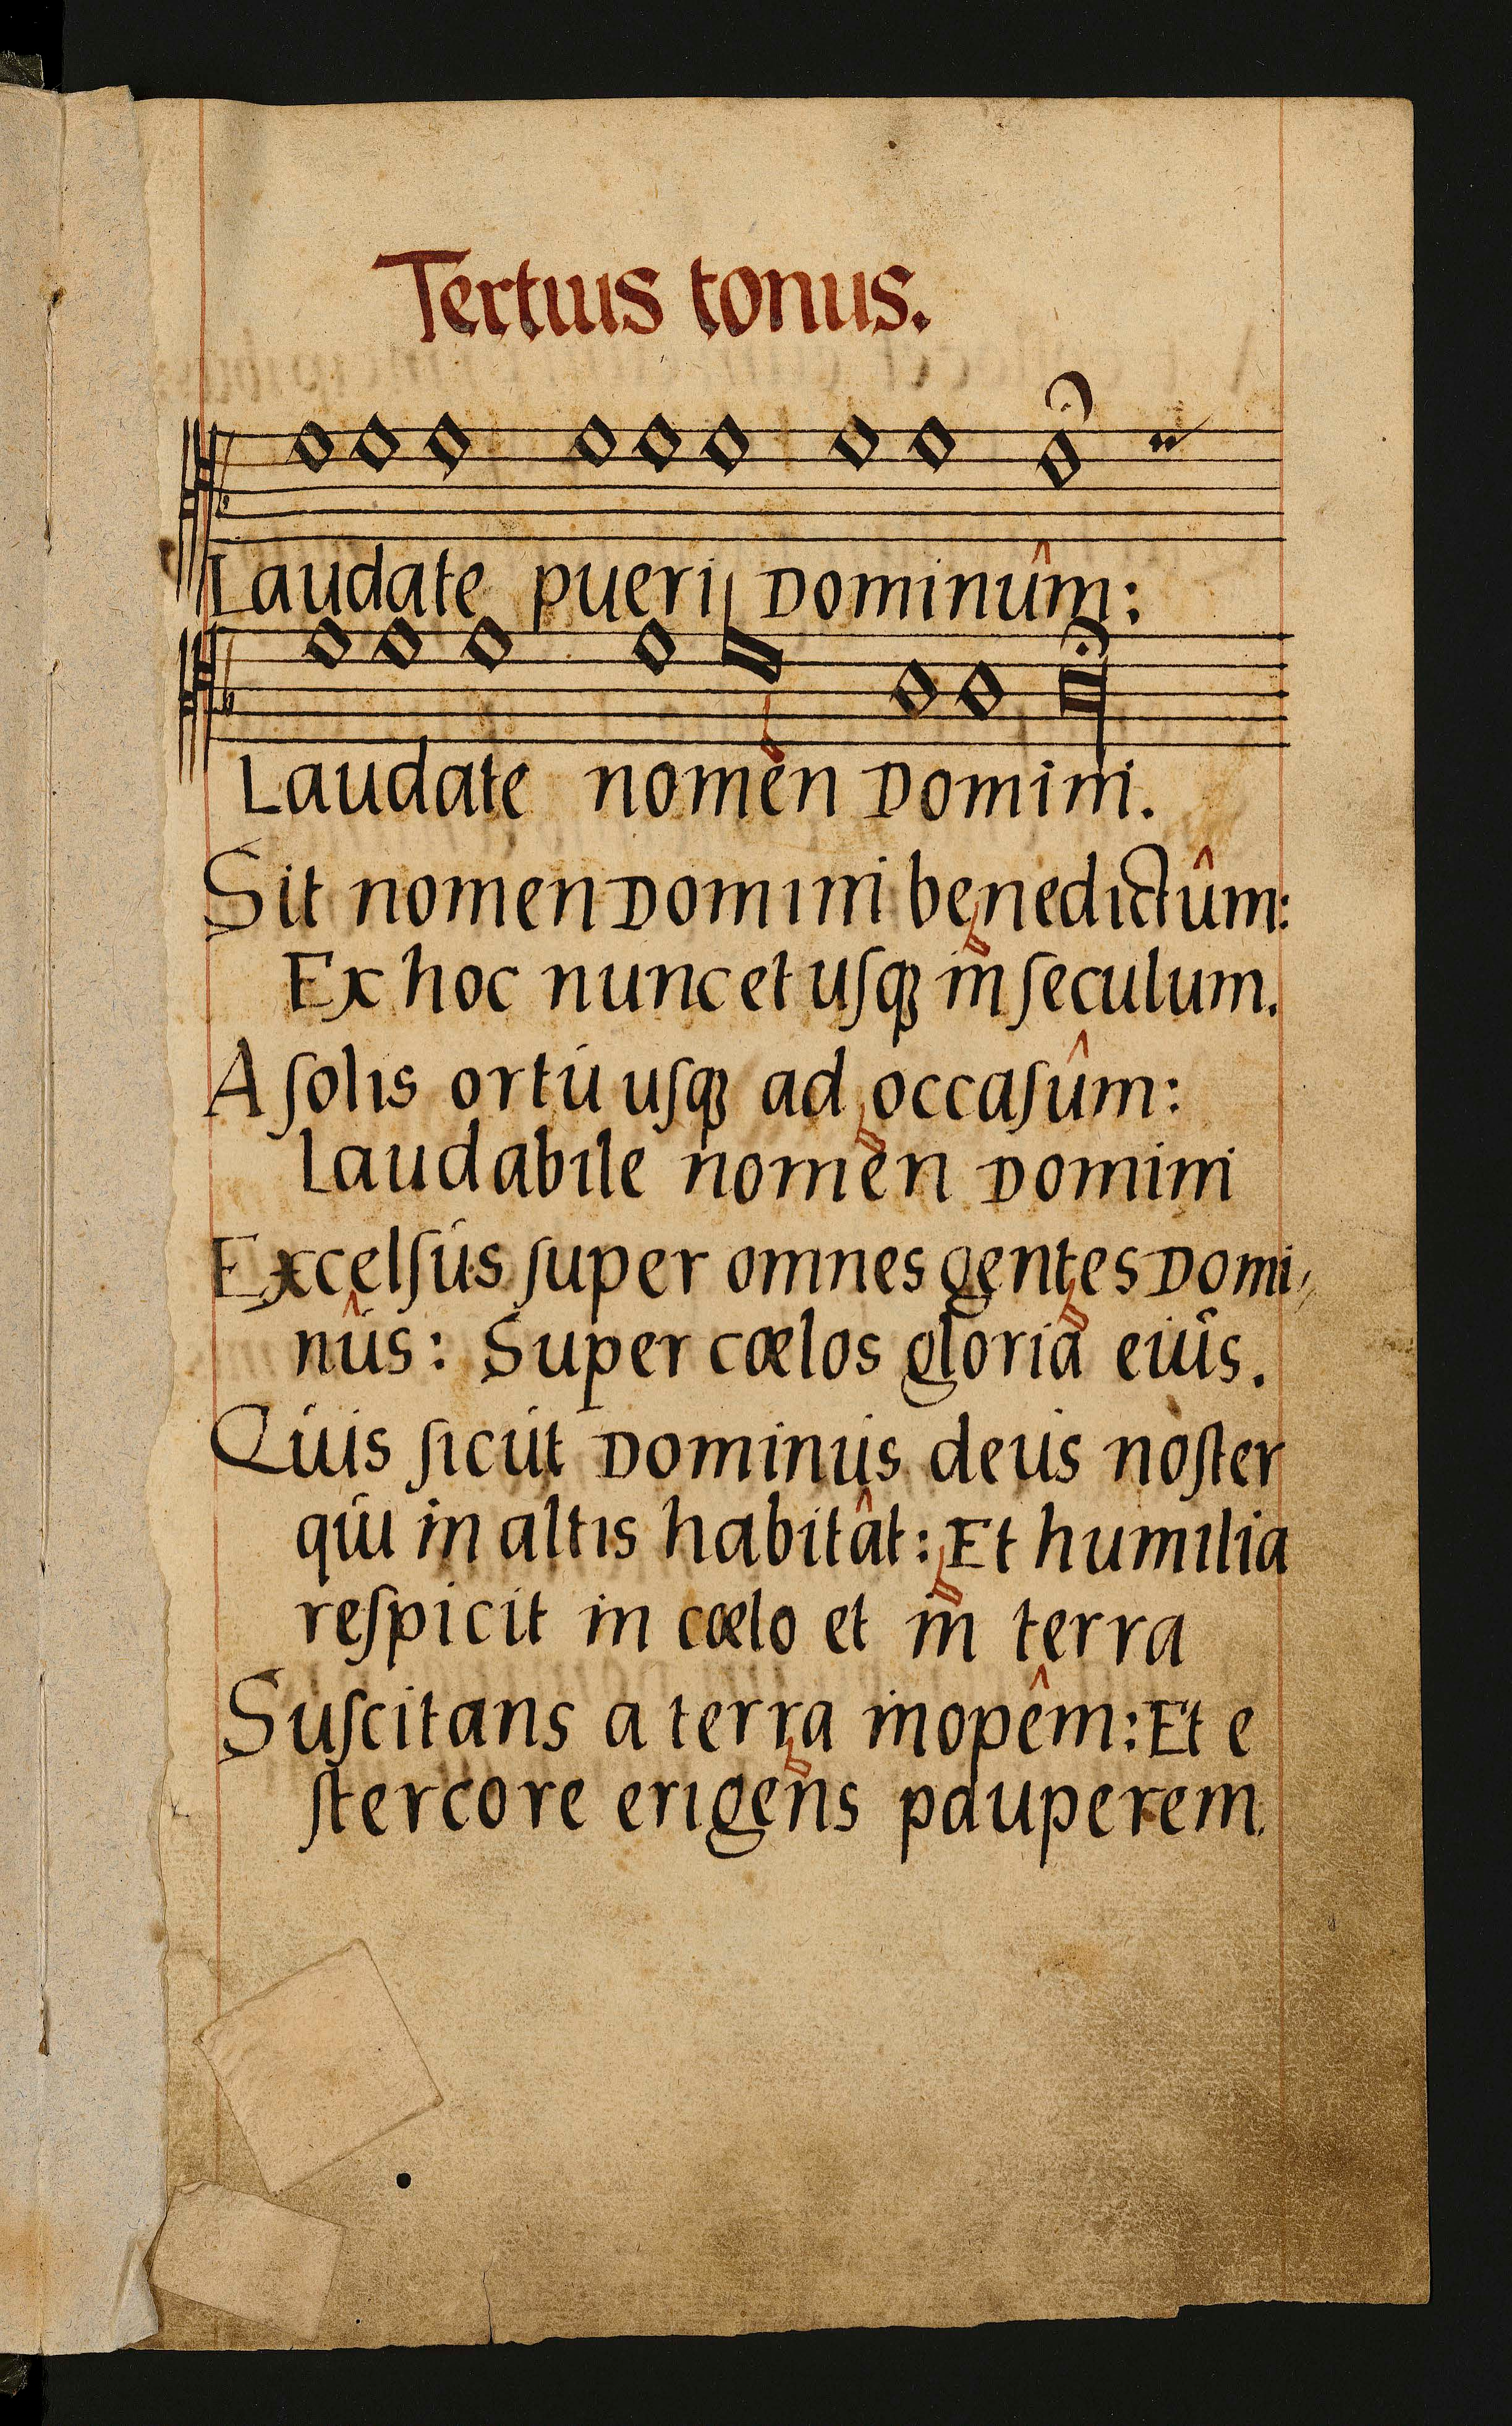 Tertius tonus.
Laudate pueri Dominûm:
Laudate nomen Domini.
Sit nomen Domini benedictûm:
Ex hoc nunc et uſqꝫ in ſeculum.
A ſolis ortú uſqꝫ ad occaſûm:
laudabile nomen Domini
Excelſús ſuper omnes gentes Domi⸗
nûs: Super cœlos gloria eiús.
Qúis ſicút Dominús deús noſter
qúi in altis habitât: Et humilia
reſpicit in cœlo et in terra
Suſcitans a terra inopêm: Et e
ſtercore erigens pauperem.